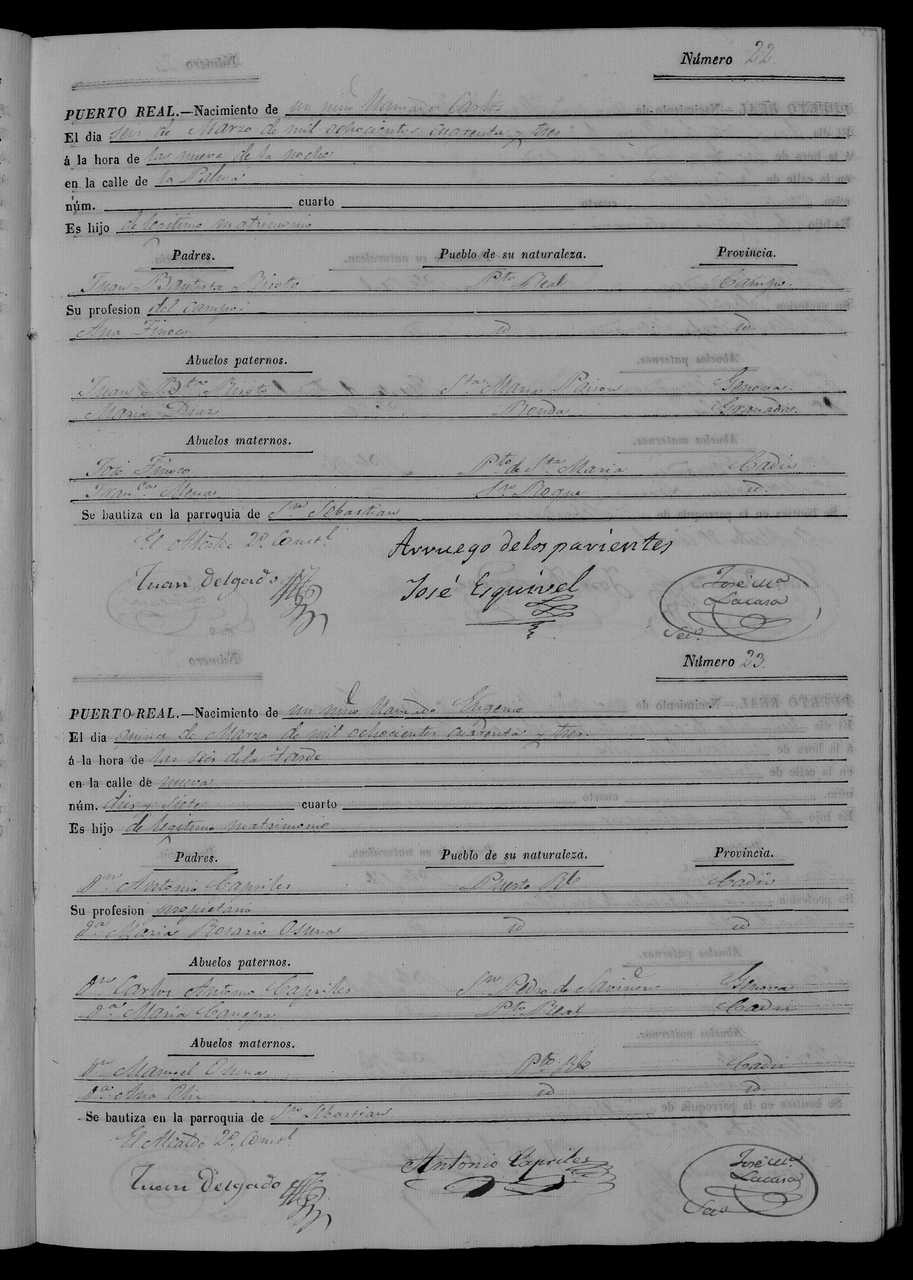 Número 22
PUERTO REAL.—Nacimiento de un niño llamado Carlos
El dia seis de Marzo de mil ochocientos cuarenta y tres
á la hora de las nueve de la noche
en la calle de la Palma
núm. cuarto
Es hijo de legitimo matrimonio
Padres. Pueblo de su naturaleza. Provincia.
Juan Bautista Pto Real
Su profesion del campo
Ana id id
Abuelos paternos.
Juan Bta Sta Maria Genova
Maria Diaz Ronda Granada
Abuelos maternos.
José Pto de Sta Maria Cadiz
Franca Mena Sn Roque id.
Se bautiza en la parroquia de Sn Sebastian
El Alcalde 2º Const
Arruego de los parientes
Juan Delgado José Esquivel José Mª Lacasa
Seco
Número 23.
PUERTO-REAL.—Nacimiento de un niño llamado Eugenio
El dia quince de Marzo de mil ochocientos cuarenta y tres
á la hora de las dos de la tarde
en la calle de nueva
núm. diez y siete cuarto
Es hijo de legitimo matrimonio
Padres. Pueblo de su naturaleza. Provincia.
Dn Antonio Capriles Puerto Rl Cadiz
Su profesion propietario
Dª Maria Rosario Osuna id id
Abuelos paternos.
Dn Carlos Antonio Capriles Sn Pedro de Genova
Dª Maria Canepa Pto Real Cadiz
Abuelos maternos.
Dn Manuel Osuna Pto Rl Cadiz
Dª Ana id id
Se bautiza en la parroquia de Sn Sebastian
El Alcalde 2º Const
Juan Delgado Antonio Capriles José Mª Lacasa
Seco